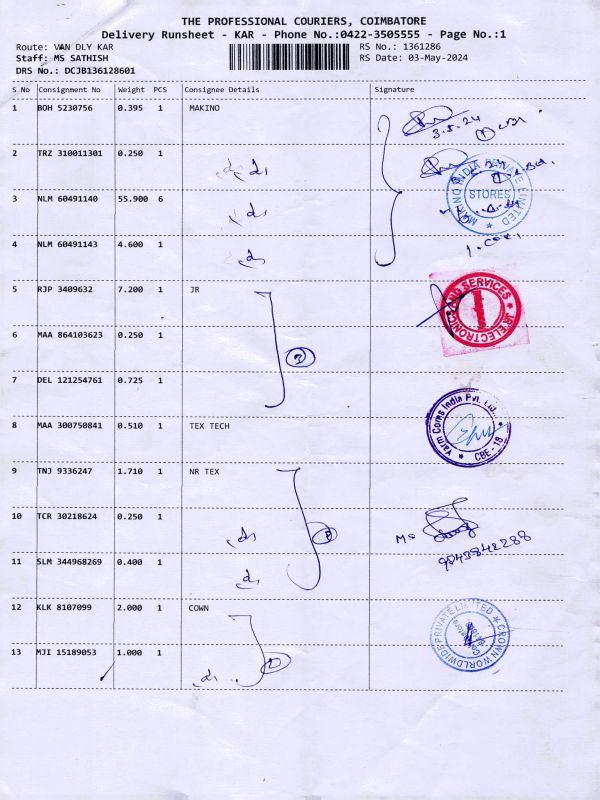 THE PROFESSIONAL COURIERS, COIMBATORE
Delivery Runsheet - KAR - Phone No.:0422-3505555 - Page No.:1
Route: VAN DLY KAR
RS No.: 1361286
Staff: MS SATHISH
RS Date: 03-May-2024
DRS No.: DCJB136128601
S No Consignment No Weight PCS Consignee Details Signature
1 BOH 5230756 0.395 1 MAKINO
3.5.24
2 TRZ 310011301 0.250 1
MAKINO INDIA PRIVATE LIMITED
STORES
3 NLM 60491140 55.900 6
4 NLM 60491143 4.600 1
5 RJP 3409632 7.200 1 JR
JR ELECTRONICS AND SERVICES
6 MAA 864103623 0.250 1
7 DEL 121254761 0.725 1
8 MAA 300750841 0.510 1 TEX TECH
Yarm Coms India Pvt. Ltd.
CBE - 18
9 TNJ 9336247 1.710 1 NR TEX
10 TCR 30218624 0.250 1
11 SLM 344968269 0.400 1
9843842288
12 KLK 8107099 2.000 1 COWN
CROWN WORLDWIDE PRIVATE LIMITED
13 MJI 15189053 1.000 1